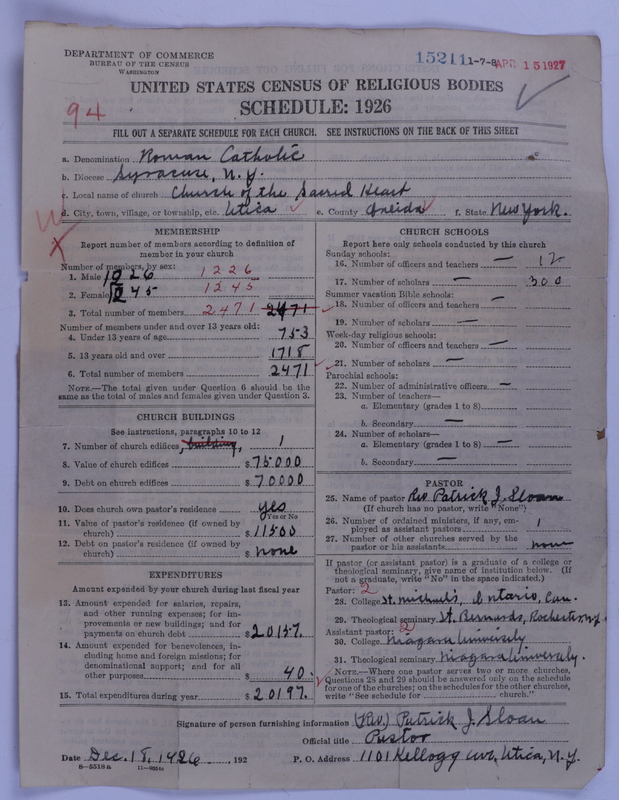 DEPARTMENT OF COMMERCE
BUREAU OF THE CENSUS
WASHINGTON
15211 1-7-8 APR 15 1927
UNITED STATES CENSUS OF RELIGIOUS BODIES
SCHEDULE: 1926
94
FILL OUT A SEPARATE SCHEDULE FOR EACH CHURCH. SEE INSTRUCTIONS ON THE BACK OF THIS SHEET
a. Denomination Roman Catholic
b. Diocese Syracuse, N.Y.
c. Local name of church Church of the Sacred Heart
d. City, town, village, or township, etc. Utica e. County Oneida f. State New York.
MEMBERSHIP
Report number of members according to definition of
member in your church
Number of members, by sex:
1. Male 1226
2. Female 1245
3. Total number of members 2471 2471
Number of members under and over 13 years old:
4. Under 13 years of age 753
5. 13 years old and over 1718
6. Total number of members 2471
NOTE.—The total given under Question 6 should be
same as the total of males and females given under Question 3.
CHURCH BUILDINGS
See instructions, paragraphs 10 to 12
7. Number of church edifices, building, 1
8. Value of church edifices $75000
9. Debt on church edifices $70000
10. Does church own pastor's residence yes
Yes or No
11. Value of pastor's residence (if owned by
church) $11500
12. Debt on pastor's residence (if owned by
church) $ none
EXPENDITURES
Amount expended by your church during last fiscal year
13. Amount expended for salaries, repairs,
and other running expenses; for im-
provements or new buildings; and for
payments on church debt $20157.
14. Amount expended for benevolences, in-
cluding home and foreign missions; for
denominational support; and for all
other purposes $ 40.
15. Total expenditures during year $20197.
CHURCH SCHOOLS
Report here only schools conducted by this church
Sunday schools:
16. Number of officers and teachers — 12
17. Number of scholars — 300
Summer vacation Bible schools:
18. Number of officers and teachers —
19. Number of scholars —
Week-day religious schools:
20. Number of officers and teachers —
21. Number of scholars —
Parochial schools:
22. Number of administrative officers —
23. Number of teachers—
a. Elementary (grades 1 to 8) —
b. Secondary —
24. Number of scholars—
a. Elementary (grades 1 to 8) —
b. Secondary —
PASTOR
25. Name of pastor Rev. Patrick J. Sloan
(If church has no pastor, write "None")
26. Number of ordained ministers, if any, em-
ployed as assistant pastors 1
27. Number of other churches served by the
pastor or his assistants none
If pastor (or assistant pastor) is a graduate of a college or
theological seminary, give name of institution below. (If
not a graduate, write "No" in the space indicated.)
Pastor: 2
28. College St. Michael's, Ontario, Can.
29. Theological seminary St. Bernards, Rochester N.Y.
Assistant pastor: 2
30. College Niagara University
31. Theological seminary Niagara University.
NOTE.—Where one pastor serves two or more churches,
Questions 28 and 29 should be answered only on the schedule
for one of the churches; on the schedules for the other churches,
write "See schedule for church."
Signature of person furnishing information (Rev.) Patrick J. Sloan
Official title Pastor
Date Dec. 18, 1926, 192 P. O. Address 1101 Kellogg Ave, Utica, N.Y.
8—5518a